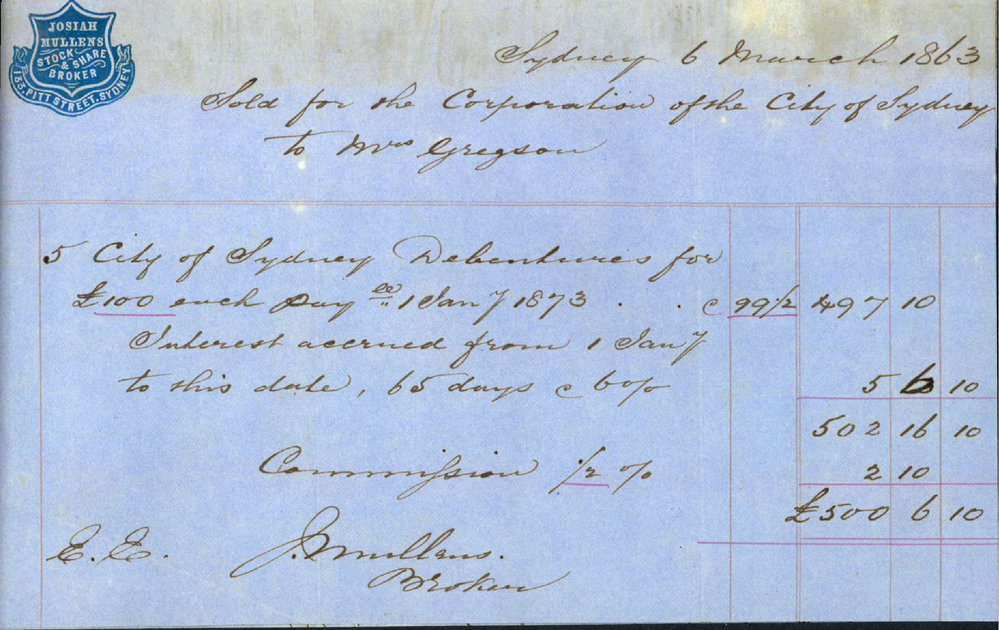 JOSIAH
MULLENS
STOCK
& SHARE
BROKER
133, PITT STREET, SYDNEY
Sydney 6 March 1863
Sold for the Corporation of the City of Sydney
to Mrs Gregson
5 City of Sydney Debentures for
£100 each pay ee 1 Jany 1873 . . @ 99 1/2 497 10
Interest accrued from 1 Jany
to this date, 65 days @ 6 o/o 5 6 10
502 16 10
Commission 1/2 o/o 2 10
£500 6 10
E. E. J. Mullens.
Broker